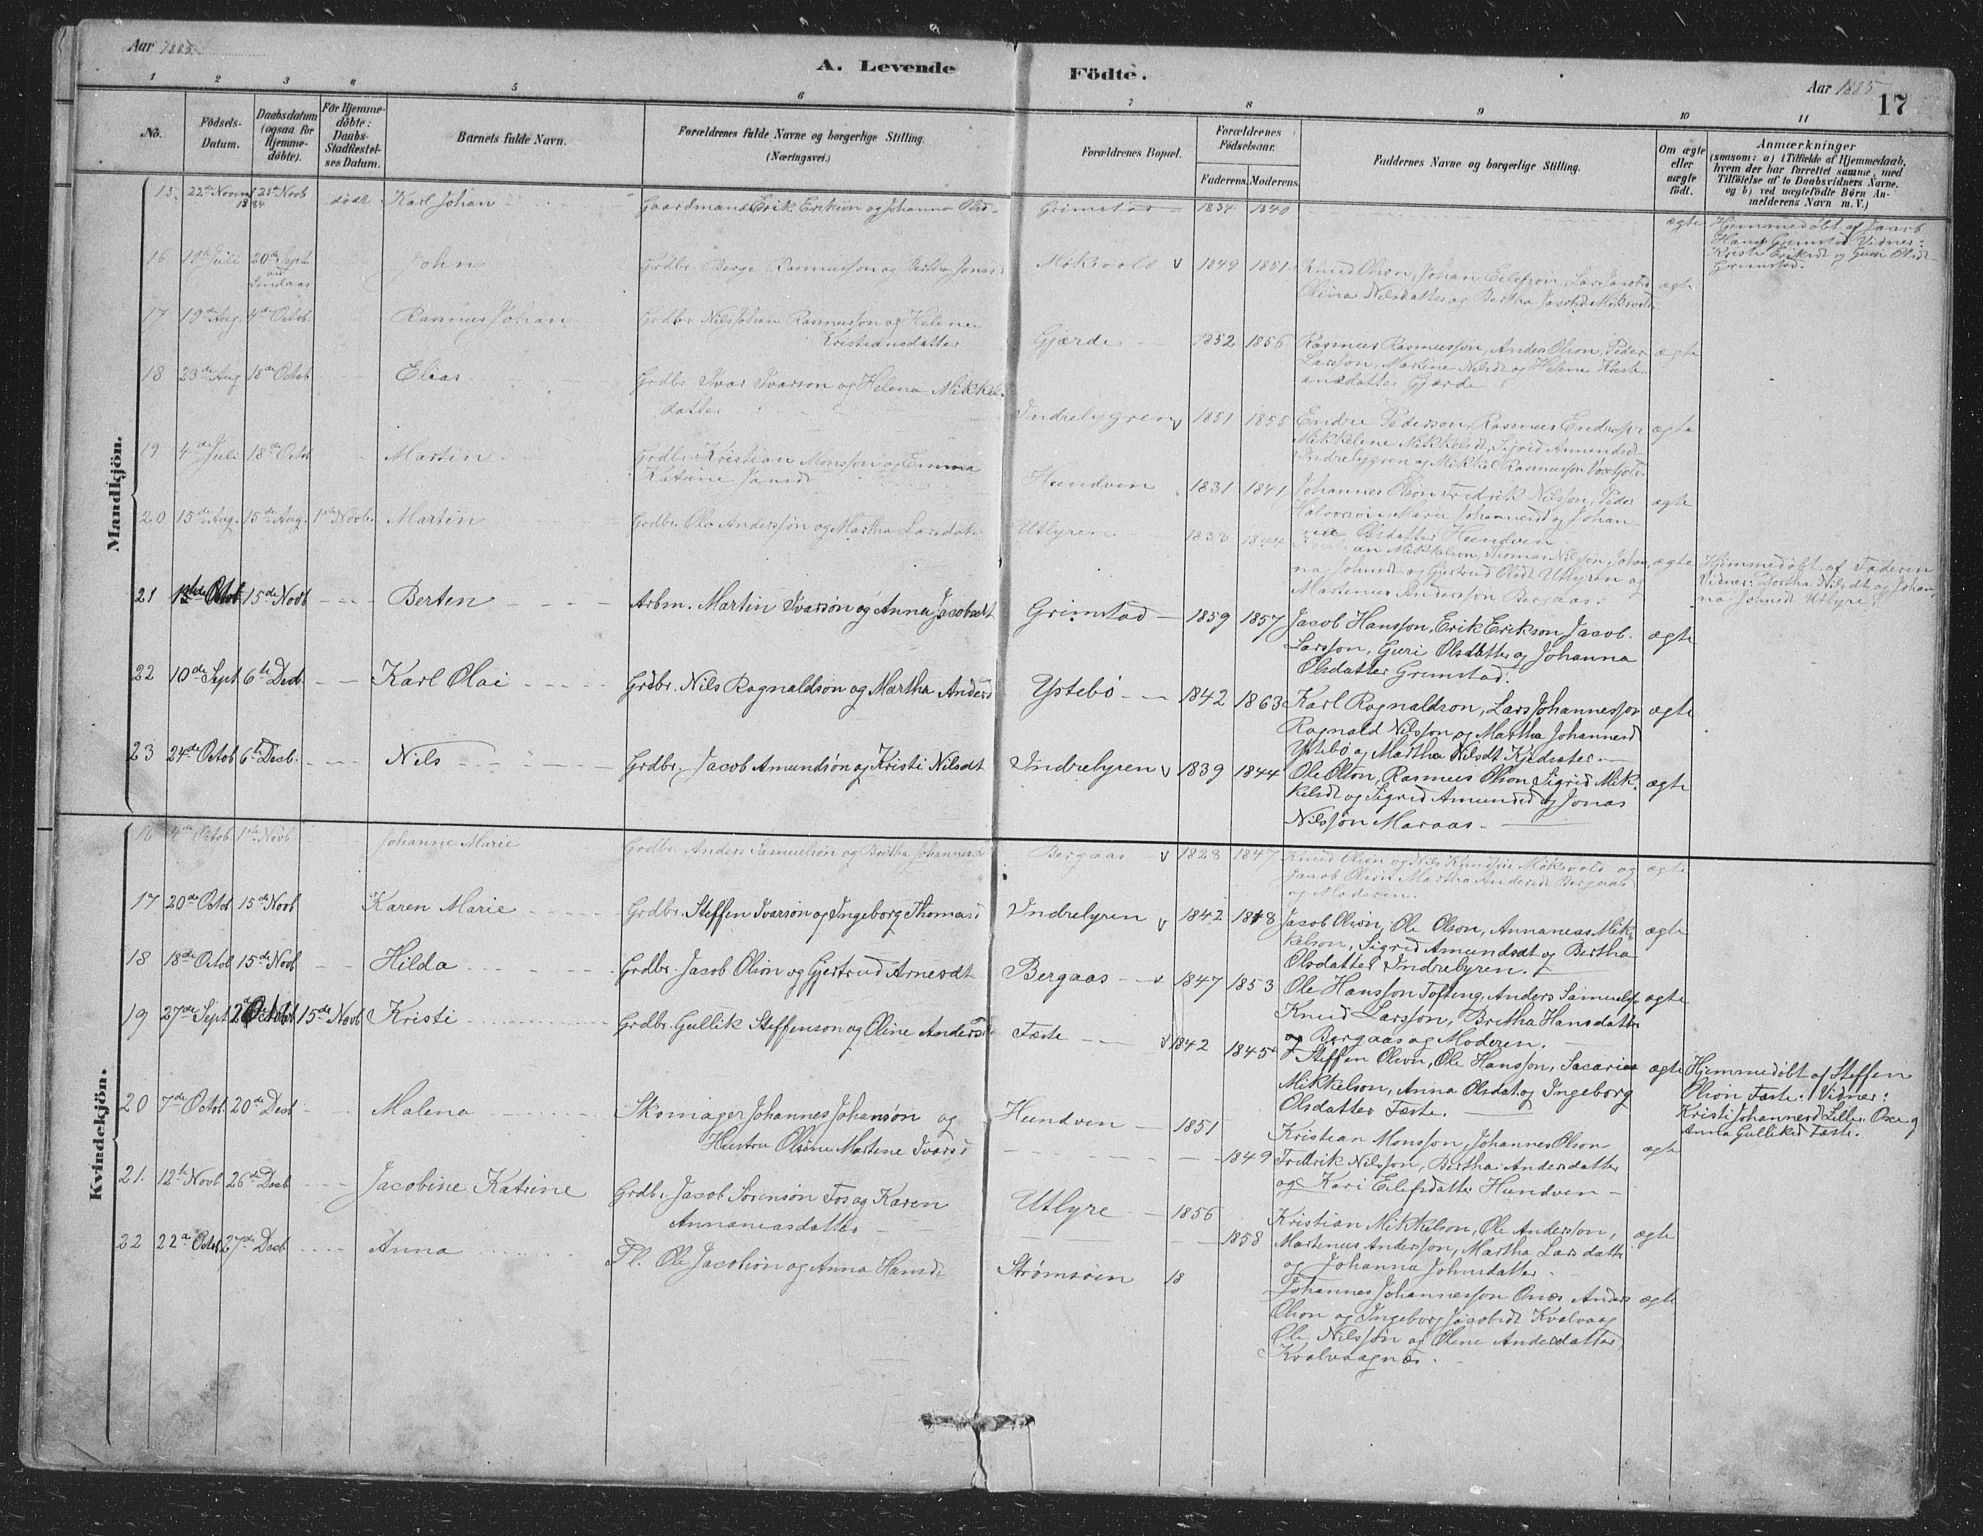 Aar 1885
A. Levende Födte.
Aar 1885
17
1 2 3 4 5 6 7 8 9 10 11
No.
Födsels-Datum.
Daabsdatum (ogsaa for Hjemme-döbte).
För Hjemme-döbte: Daabs-Stadfæstel-ses Datum.
Barnets fulde Navn.
Forældrenes fulde Navne og borgerlige Stilling. (Næringsvei.)
Forældrenes Bopæl.
Forældrenes Födselsaar.
Faderens. Moderens.
Faddernes Navne og borgerlige Stilling.
Om ægte eller uægte födt.
Anmærkninger
(saasom: a) i Tilfælde af Hjemmedaab, hvem der har forrettet samme, med Tilföielse af to Daabsvidners Navne, og b) ved uægtefödte Börn An-melderens Navn m. V.)
Mandkjön.
15. 22de Novem 1884 23de Novb död Karl Johan Gaardmand Erik Erikson og Johanna Olsd. Grimstad 1834 1840 ægte
Hjemmedøbt af Jacob
Hans Grimstad Vidner:
Kristi Eriksdt og Guri Olsdt
Grimstad.
16 19de Juli 20de Sept Lindaas John Grdbr. Børge Rasmussøn og Bertha Jonasd Moksvold 1849 1851
Knud Olson, Johan Eilefson, Lars Jacobs
Olina Nilsdatter og Bertha Jacobsd Moksvold
ægte
17 19de Aug. 4de Octob Rasmus Johan Grdbr Nils Johan Rasmusson og Helene
Kristiansdatter
Gjærde 1852 1856 Rasmus Rasmussøn, Anders Olson, Peder
Larsson, Martine Nilsdt og Helene Kristi-
ansdatter Gjærde
ægte
18 23de Aug 18de Octob Elias Grdbr Ivar Ivarson og Helena Mikkels
datter
Indrelygren 1851 1855 Endre Pederson, Rasmus Endresøn
Mikkeline Mikkelsdt, Sigrid Amundsd
Indrelygren og Mikkel Rasmusson
ægte
19 4de Juli 18de Octb Martin Grdbr. Kristian Monsson og Emma
Katrine Jansdt
Hundven 1831 1841 Johannes Olson Fredrik Nilsson, Peder
Halvorson Marie Johannesdt og Johan-
ne Olsdatter Hundven
ægte
20 15de Aug. 15de Aug. 1ste Novbr Martin Grdbr. Ole Anderssøn og Martha Larsdatt Utlyren 1833 1844
an Mikkelson, Thomas Nilsson, Johan
na Johnsdt og Gjertrud Olsdt Utlyren og
Martenus Andersson Bergaas.
ægte
Hjemmedøbt af Faderen
Vidner: Dortha Nilsdt og Johan
na Johnsdt Utlyre
21 Octob 15de Novb Berten Arbm. Martin Ivarsøn og Anna Jacobsdt Grimstad 1859 1857
Jacob Hansson, Erik Erikson, Jacob
Larsson, Guri Olsdatter og Johanna
Olsdatter Grimstad.
ægte
22 10de Sept 6te Decb Karl Olai Grdbr. Nils Ragnaldson og Martha Andersd Ystebö 1842 1863
Karl Ragnaldson, Lars Johannesson
Ragnald Nilsson og Martha Johannesd
Ystebö og Martha Nilsdt
ægte
23 24de Octob 6te Decb. Nils Grdbr. Jacob Amundsøn og Kristi Nilsdt Indrelyren 1839 1844
Ole Olson, Rasmus Olson, Sigrid Mik-
kelsdt og Sigrid Amundsd og Jonas
Nilssön Maraas.
ægte
Kvindekjön.
16 4de Octob 1ste Novb. Johanne Marie Grdbr. Anders Samuelsøn og Brithe Johannesd Bergaas 1828 1847
Knud Olson og Nils Knudson Moksvold og
Jacob Olson Martha Andersdt Bergaas
og Moderen.
ægte
17 20de Octob 15de Novb Karen Marie Grdbr. Steffen Ivarson og Ingeborg Thomasd Indrelyren 1842 1848
Jacob Olson, Ole Olson, Annanias Mik-
kelson, Sigrid Amundsdt og Bertha
Olsdatter Indrelyren.
ægte
18 18de Octob 15de Novb Hilda Grdbr. Jacob Olson og Gjertrud Arnesdt Bergaas 1847 1853
Ole Hansson Tofteng, Anders Samuelsen
Knud Larsson, Britha Hansdatter
og Bergaas og Moderen.
ægte
19 27de Sept Octob 15de Novb Kristi Grdbr. Gullik Steffenson og Oline Andersd Fæste 1842 1845
Steffen Olson, Ole Hansson, Sacarias
Mikkelson, Anna Olsdat og Ingeborg
Olsdatter Fæste.
ægte
Hjemmedøbt af Steffen
Olson Fæste. Vidner:
Kristi Johannesd Lille-Oxe og
Anna Gulliksd Fæste.
20 7de Octob 20de Decb Malena Skomager Johannes Johansøn og
Hustru Olsine Martene Ivarsd
Hundven 1851
1849
Kristian Monsson, Johannes Olson
Fredrik Nilsson, Bertha Andersdatter
og Kari Eilefsdatter Hundven
ægte
21. 12te Novb 26de Decb Jacobine Katrine Grdb. Jacob Sørenson Fos og Karen
Annaniasdatter
Utlyre 1856
1858
Kristian Mikkelson, Ole Andersson,
Martenus Andersson, Martha Larsdatter
og Johanna Johnsdatter
ægte
22 22de Octob 27de Decb Anna Pl. Ole Jacobson og Anna Hansdt Strømsøen 18
Johannes Johannesson Anders
Olson og Ingeborg Jacobsdt Kvalvaag
Ole Nilsson og Oline Andersdatter
Kvalvaagnes.
ægte